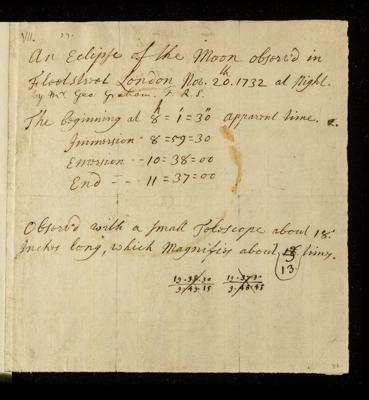 VII. 27.
An Eclipse of the Moon observ'd in
Fleetstreet London Nov. 20.th 1732 at Night.
by Mr. Geo. Graham. F. R. S.
The Beginning at 8h = 1 = 30" apparent time.
Immersion - 8 = 59 = 30
Emersion - 10 = 38 = 00
End - - - 11 = 37 = 00
Observ'd with a small Telescope about 18
Inches long, which Magnifies about times.
13